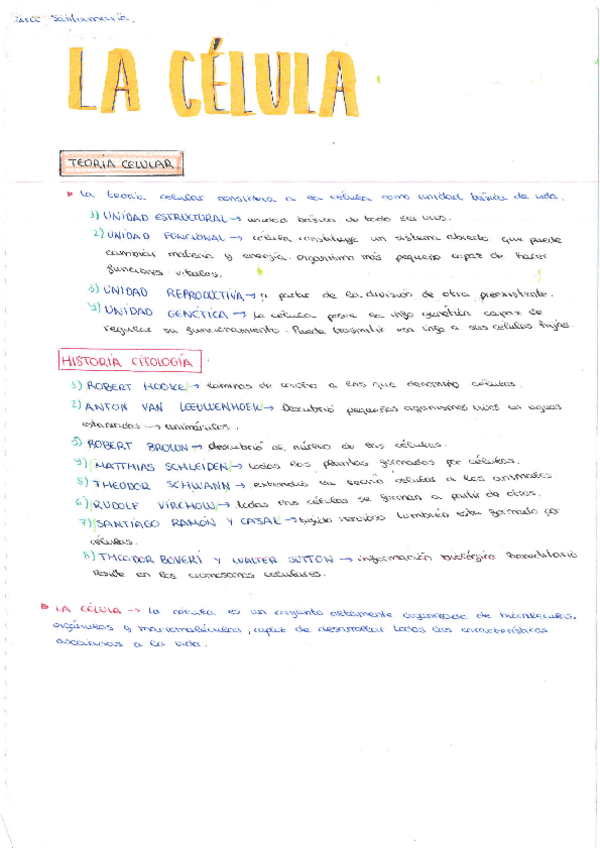 Santamaría.
LA CÉLULA
TEORÍA CELULAR
La teoría celular considera a la célula como unidad básica de vida.
1) UNIDAD ESTRUCTURAL → unidad básica de todo ser vivo.
2) UNIDAD FUNCIONAL → célula constituye un sistema abierto que puede
cambiar materia y energía. organismo más pequeño capaz de hacer
funciones vitales.
3) UNIDAD REPRODUCTIVA → a partir de la división de otra preexistente.
4) UNIDAD GENÉTICA → la célula posee la info genética capaz de
regular su funcionamiento. Puede trasmitir esa info a sus células hijas.
HISTORIA CITOLOGÍA
1) ROBERT HOOKE → láminas de corcho a las que denominó células.
2) ANTON VAN LEEUWENHOEK → Descubrió pequeños organismos vivos en aguas
estancadas → animáculos.
3) ROBERT BROWN → descubrió el núcleo de las células.
4) MATTHIAS SCHLEIDEN → todas las plantas formadas por células.
5) THEODOR SCHWANN → extendió la teoría celular a los animales
6) RUDOLF VIRCHOW → todas las células se forman a partir de otras.
7) SANTIAGO RAMÓN Y CAJAL → tejido nervioso también esta formado por
células.
8) THEODOR BOVERÍ y WALTER SUTTON → información biológica hereditaria
reside en los cromosomas celulares.
LA CÉLULA → La célula es un conjunto altamente organizado de biomoléculas,
orgánulos y macromoléculas, capaz de desarrollar todas las características
asociadas a la vida.